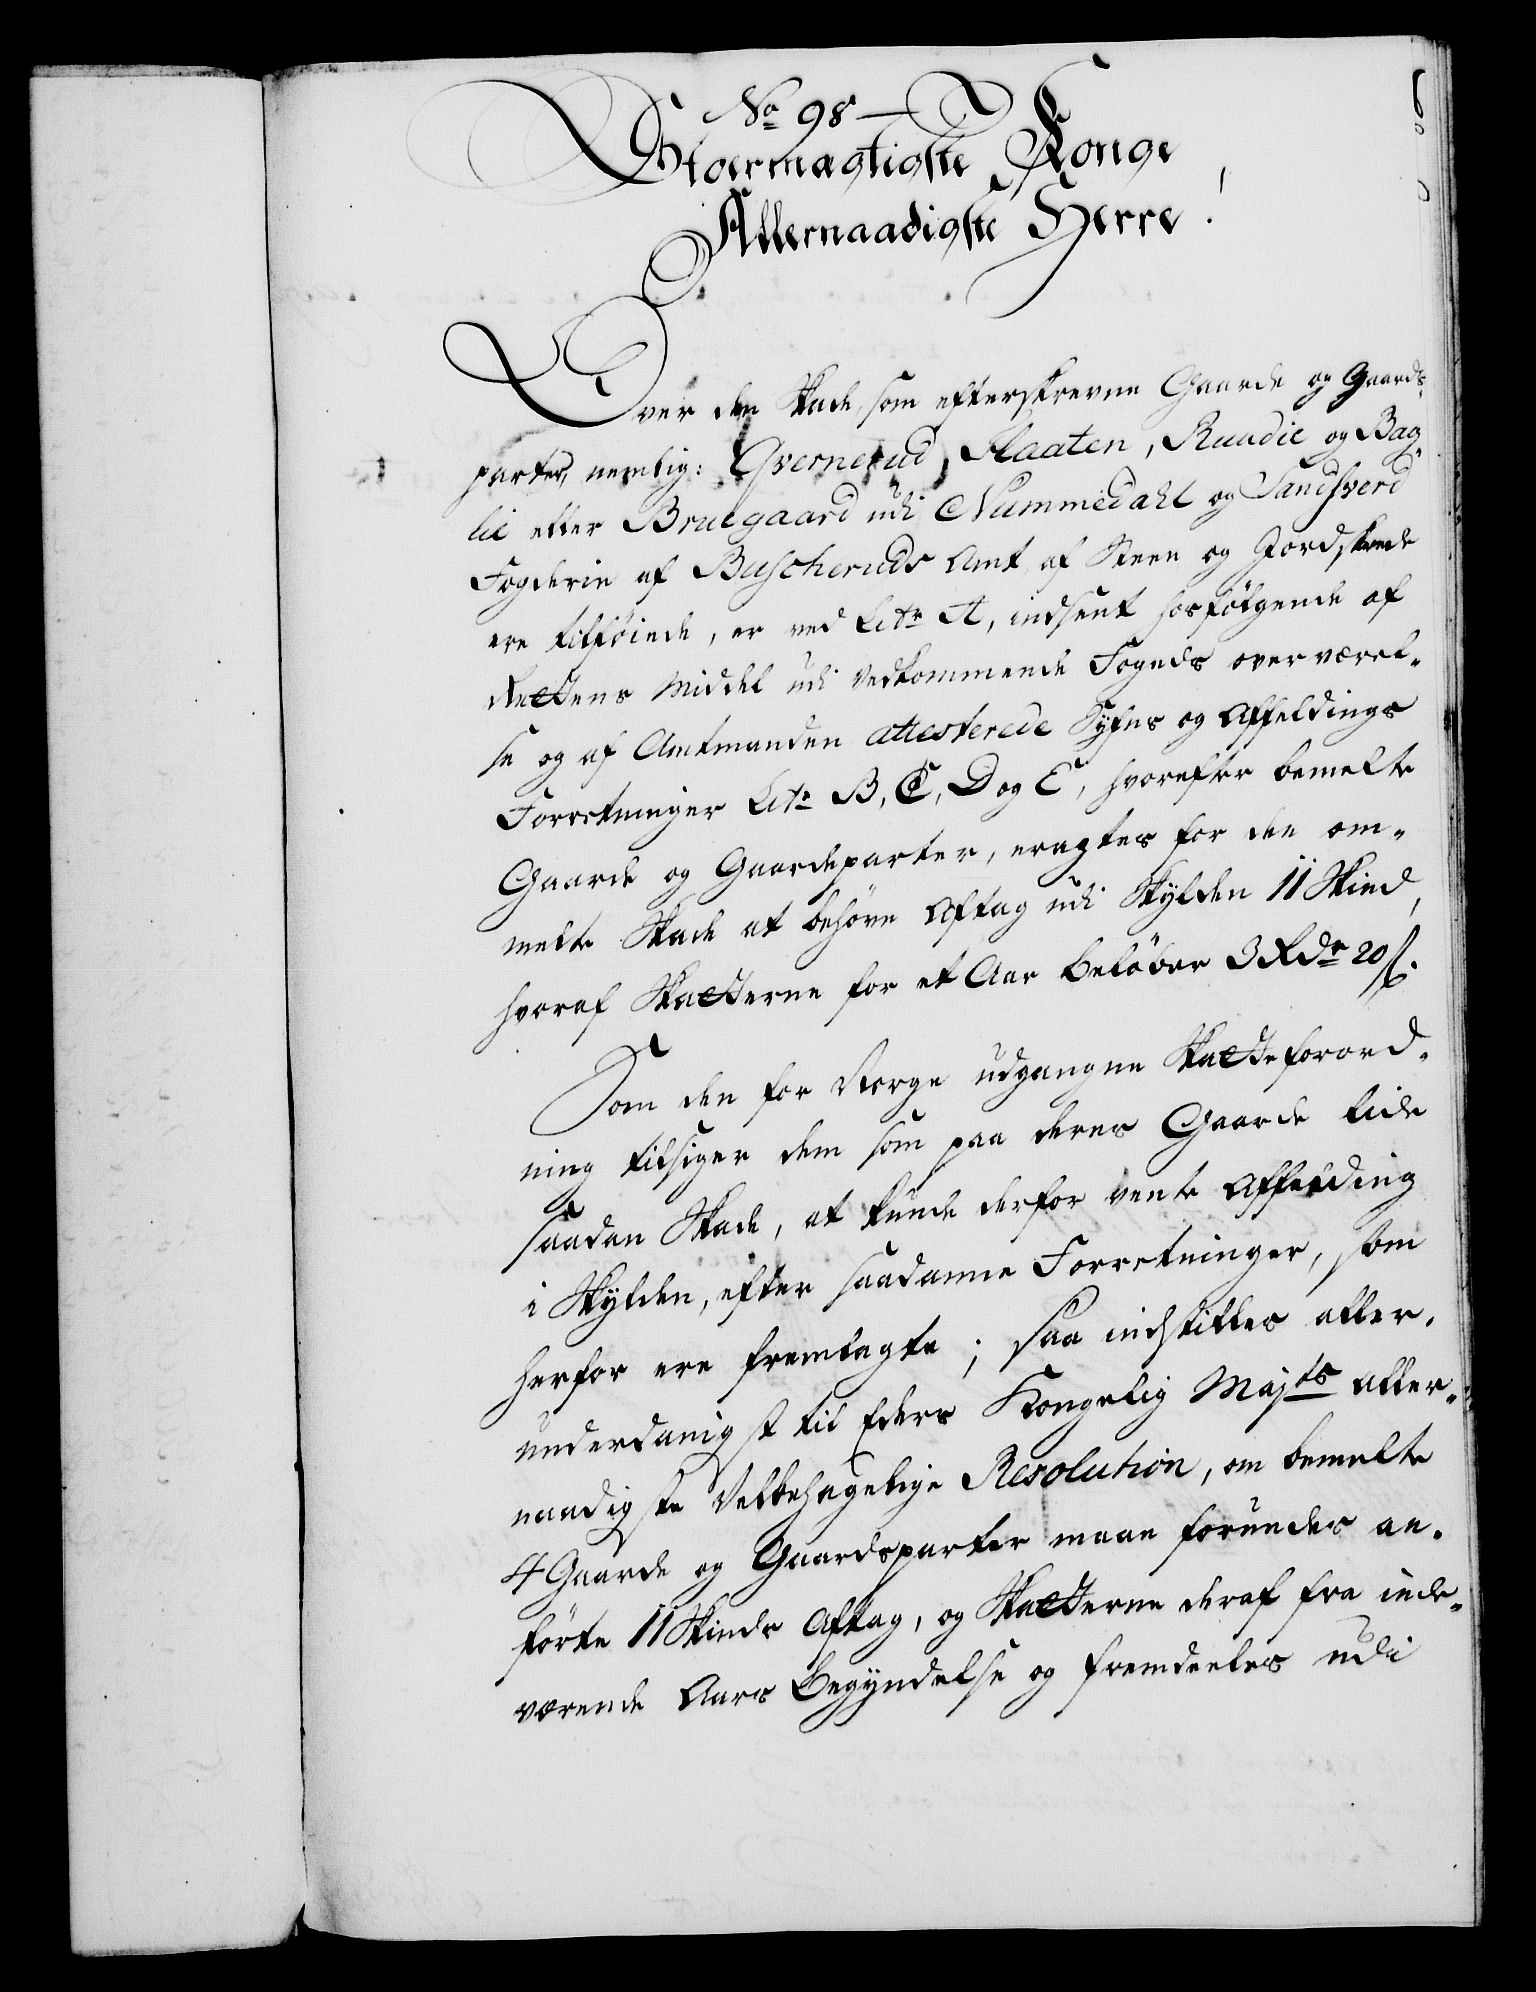 No 98 —
Stormægtigste Konge
Allernaadigste Herre!
Over den Skade, som efterskrevne Gaarde og Gaards-
parter, nemlig: Qvernerud, Flaaten, Ruudie og Bag-
lie etter Bruegaard udi Nummedahl og Sandsverd
Fogderie af Buscheruds Amt af Steen og Jordskrede
ere tilföiede, er ved Litr A, indsent hosfölgende af
Rettens Middel udi Vedkommende Fogeds overværel-
se og af Amtmanden attesterede Syfns og Affeldings
Forretninger Litr B, C, D og E, hvorefter bemelte
Gaarde og Gaardeparter, eragtes for den om-
melte Skade at behöve Aftag udi Skylden 11 Skind,
hvoraf Skatterne for et Aar belöber 3 Rdr 20 ſ.
Som den for Norge udgangne Skatteforord-
ning tilsiger dem som paa deres Gaarde lide
saadan Skade, at kunde derfor vente Affelding
i Skylden, efter saadanne Forretninger, som
herfor ere fremlagte; saa indstilles aller-
underdanigst til Eders Kongelig Majts aller-
naadigste Velbehagelige Resolution, om bemelte
4 Gaarde og Gaardsparter maae forundes an-
förte 11 Skinds Aftag, og Skatterne deraf fra inde-
værende Aars Begyndelse og fremdeeles udi